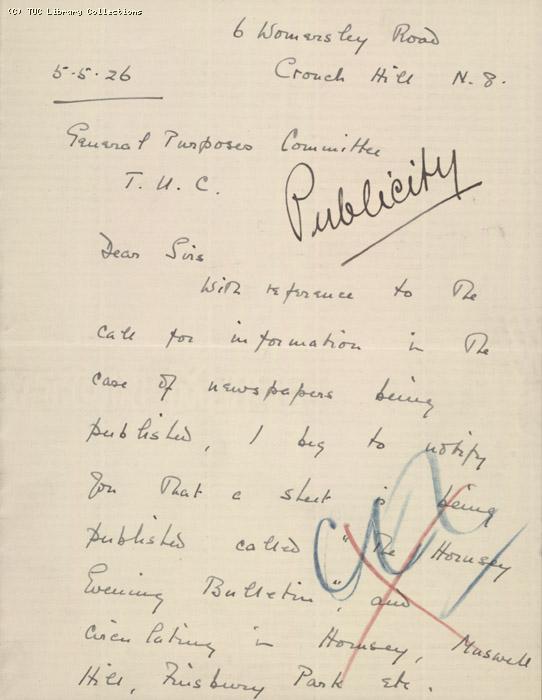 (C) TUC Library Collections
6 Womersley Road
5.5.26
Crouch Hill N.8.
General Purposes Committee
T.U.C.
Publicity
Dear Sirs
With reference to the
call for information in the
case of newspapers being
published, I beg to notify
you that a sheet is being
published called "The Hornsey
Evening Bulletin", and
circulating in Hornsey, Muswell
Hill, Finsbury Park etc.